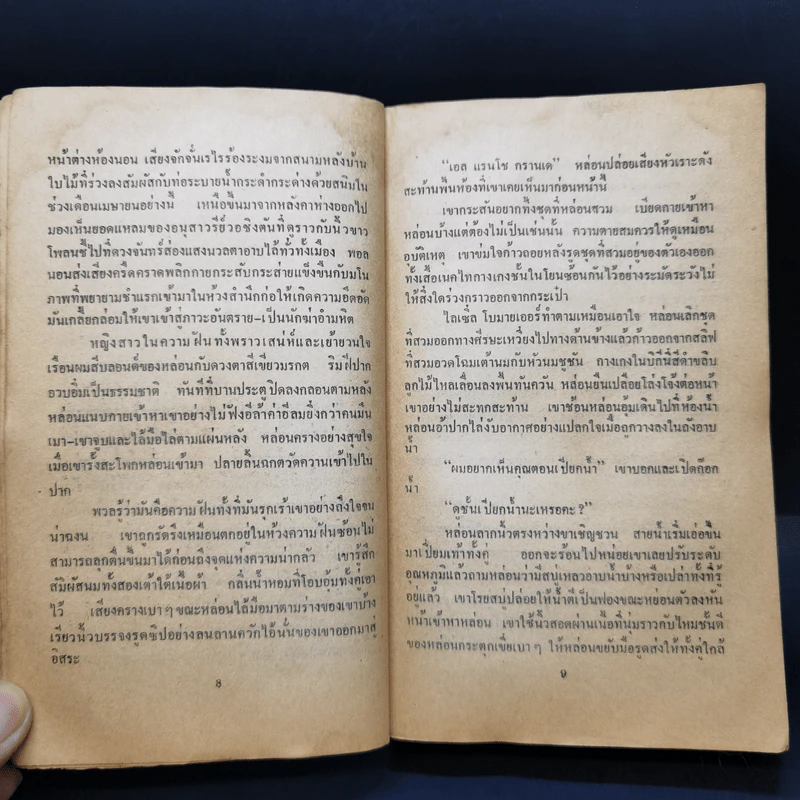 หน้าต่างห้องนอน เสียงจักจั่นเรไรร้องระงมจากสนามหลังบ้าน
ใบไม้ที่ร่วงลงสัมผัสกับท่อระบายน้ำกระดำกระด่างด้วยสนิมใน
ช่วงเดือนเมษายนอย่างนี้ เหนือขึ้นมาจากหลังคาห่างออกไป
มองเห็นยอดแหลมของอนุสาวรีย์วอชิงตันที่ดูราวกับนิ้วขาว
โพลนชี้ไปที่ดวงจันทร์ส่องแสงนวลตาอาบไล้ทั่วทั้งเมือง พอล
นอนส่งเสียงครืดคราดพลิกกายกระสับกระส่ายแข็งขืนกับมโน
ภาพที่พยายามชำแรกเข้ามาในห้วงสำนึกก่อให้เกิดความอึดอัด
มันเกลี้ยกล่อมให้เขาเข้าสู่ภาวะอันตราย-เป็นนักฆ่าอำมหิต
หญิงสาวในความฝันทั้งพราวเสน่ห์และเย้ายวนใจ
เรือนผมสีบลอนด์ของหล่อนกับดวงตาสีเขียวมรกต ริมฝีปาก
อวบอิ่มเป็นธรรมชาติ ทันทีที่บานประตูปิดลงกลอนตามหลัง
หล่อนแนบกายเข้าหาเขาอย่างไม่ฟังอีร้าค่าอีลมยิ่งกว่าคนมึน
เมา-เขาจูบและไล้มือไล่ตามแผ่นหลัง หล่อนครางอย่างสุขใจ
เมื่อเขารั้งสะโพกหล่อนเข้ามา ปลายลิ้นฉกตวัดควานเข้าไปใน
ปาก
พวลรู้ว่ามันคือความฝันทั้งที่มันรุกเร้าเขาอย่างถึงใจจน
น่าฉงน เขาถูกรัดรึงเหมือนตกอยู่ในห้วงความฝันซ้อนไม่
สามารถลุกตื่นขึ้นมาได้ก่อนถึงจุดแห่งความน่ากลัว เขารู้สึก
สัมผัสนมทั้งสองเต้าใต้เนื้อผ้า กลิ่นน้ำหอมที่โอบอุ้มทั้งคู่เอา
ไว้ เสียงครางเบาๆขณะหล่อนไล้มือมาตามร่างของเขาบ้าง
เรียวนิ้วบรรจงรูดซิปอย่างลนลานควักไอ้นั่นของเขาออกมาสู่
อิสระ
8
“เอล แรนโช กรานเด” หล่อนปล่อยเสียงหัวเราะดัง
สะท้านพื้นห้องที่เขาเคยเห็นมาก่อนหน้านี้
เขากระสันอยากทึ้งชุดที่หล่อนสวม เบียดกายเข้าหา
หล่อนบ้างแต่ต้องไม่เป็นเช่นนั้น ความตายสมควรให้ดูเหมือน
อุบัติเหตุ เขาข่มใจก้าวถอยหลังรูดชุดที่สวมอยู่ของตัวเองออก
ทั้งเสื้อเนคไทกางเกงชั้นในโยนซ้อนกันไว้อย่างระมัดระวังไม่
ให้สิ่งใดร่วงกราวออกจากกระเป๋า
ไลเซิ่ล โบมายเออร์ทำตามเหมือนเอาใจ หล่อนเลิกชุด
ที่สวมออกทางศีรษะเหวี่ยงไปทางด้านข้างแล้วก้าวออกจากสลิฟ
ที่สวมอวดโฉมเต้านมกับหัวนมชูชัน กางเกงในบิกีนี่สีดำขลิบ
ลูกไม้ไหลเลื่อนลงพื้นทันควัน หล่อนยืนเปลือยโล่งโจ้งต่อหน้า
เขาอย่างไม่สะทกสะท้าน เขาช้อนหล่อนอุ้มเดินไปที่ห้องน้ำ
หล่อนอ้าปากไล่งับอากาศอย่างแปลกใจเมื่อถูกวางลงในถังอาบ
น้ำ
“ผมอยากเห็นคุณตอนเปียกน้ำ” เขาบอกและเปิดก๊อก
น้ำ
“ดูชั้นเปียกน้ำนะเหรอคะ?”
หล่อนลากนิ้วตรงหว่างขาเชิญชวน สายน้ำเริ่มเอ่อขึ้น
มาเปี่ยมเท้าทั้งคู่ ออกจะร้อนไปหน่อยเขาเลยปรับระดับ
อุณหภูมิแล้วถามหล่อนว่ามีสบู่เหลวอาบน้ำบ้างหรือเปล่าทั้งที่รู้
อยู่แล้ว เขาโรยสบู่ปล่อยให้น้ำตีเป็นฟองขณะหย่อนตัวลงหัน
หน้าเข้าหาหล่อน เขาใช้นิ้วสอดผ่านเนื้อที่นุ่มราวกับไหมชั้นดี
ของหล่อนกระตุกเขี่ยเบาๆ ให้หล่อนขยับมือรูดส่งให้ทั้งคู่ใกล้
9